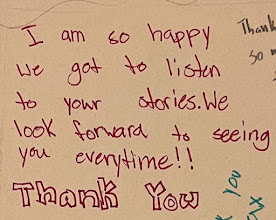 I am so happy
we got to listen
to your stories. We
look forward to seeing
you everytime!!
Thank You
Thank
so m
YOU